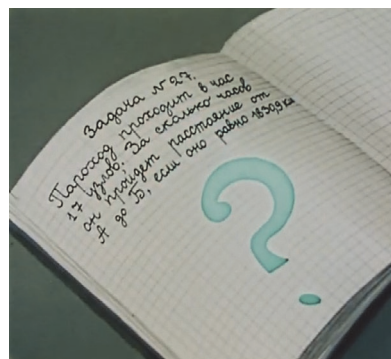 Задача № 27.
Пароход проходит в час
17 узлов. За сколько часов
он пройдет расстояние от
А до Б, если оно равно 1830,9 км
?